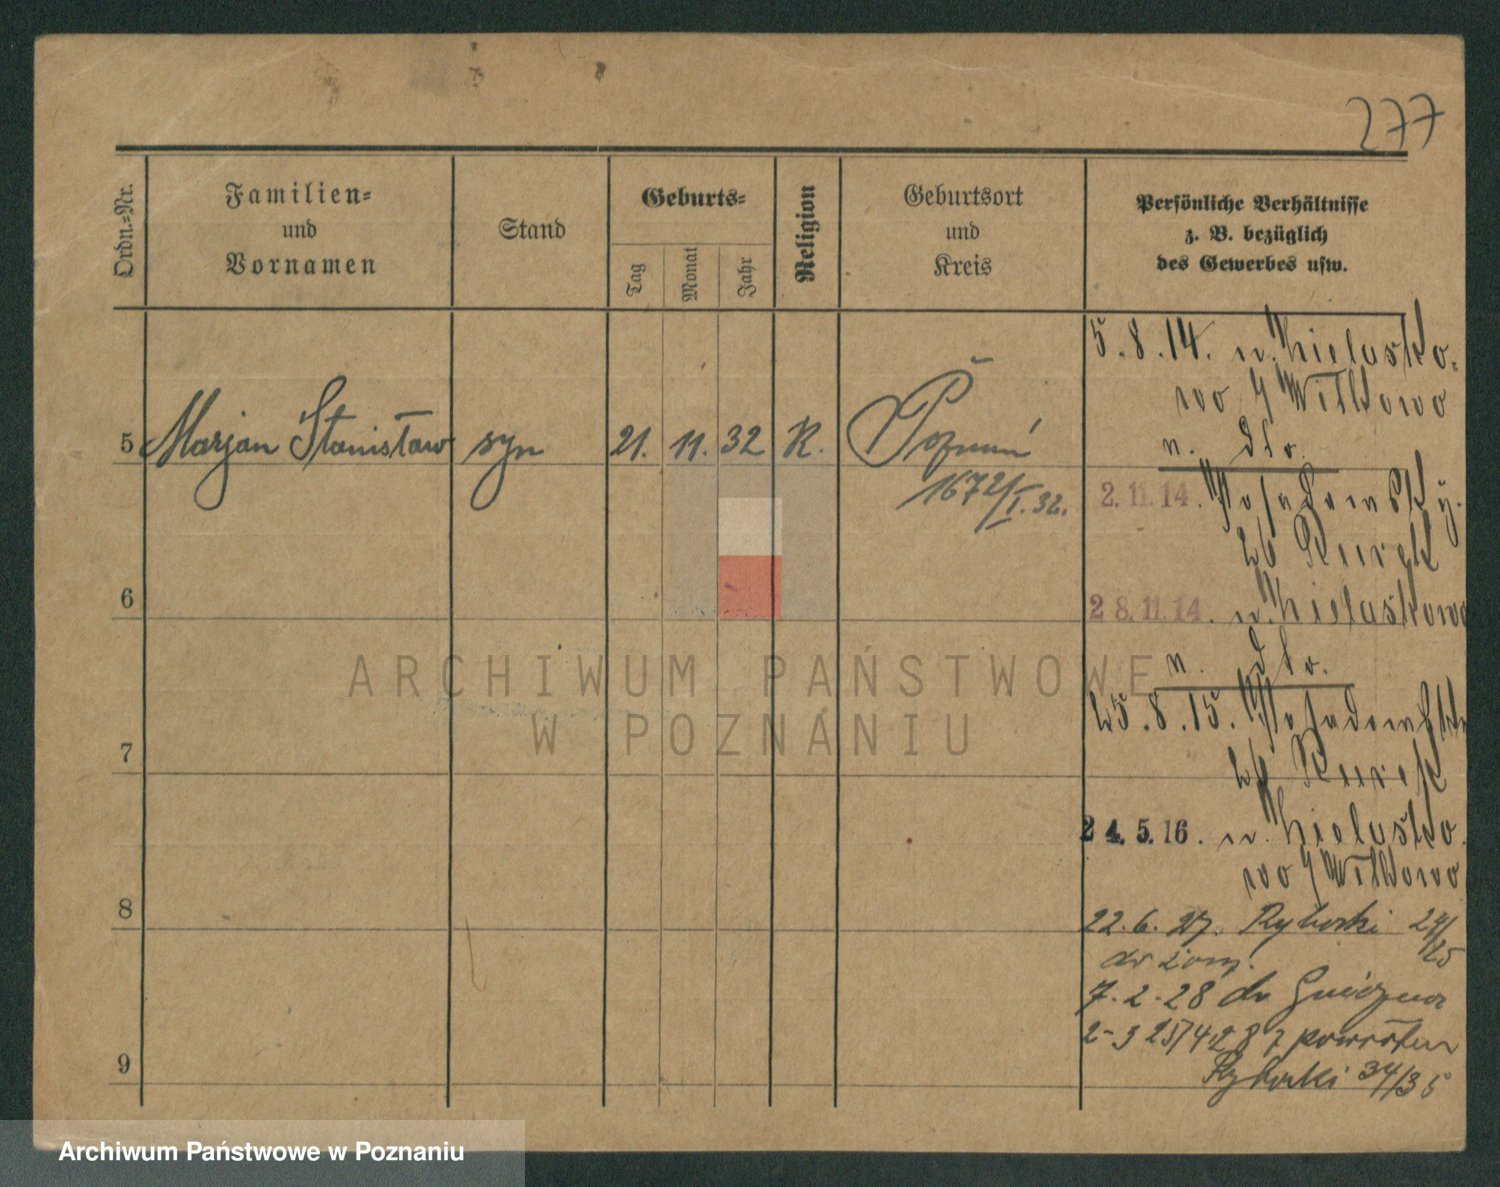 277
Ordn.=Nr.
Familien=
und
Vornamen
Stand
Geburts=
Tag
Monat
Jahr
Religion
Geburtsort
und
Kreis
Persönliche Verhältnisse
z. B. bezüglich
des Gewerbes usw.
5 Marjan Stanisław syn 21. 11. 32 K. Poznań
1672/I. 32.
6
7
8
9
5.8.14. n. Kieluszko=
wo / Witkowo
n. dto.
2.11.14.
28.11.14. n. Kieluszkowo
n. dto.
25.8.15.
24.5.16. n. Kieluszko
wo / Witkowo
22.6.27. Rybaki 24/25
7.2.28 do Gniezna
z powrotem
Rybaki 34/35
ARCHIWUM PAŃSTWOWE
W POZNANIU
Archiwum Państwowe w Poznaniu